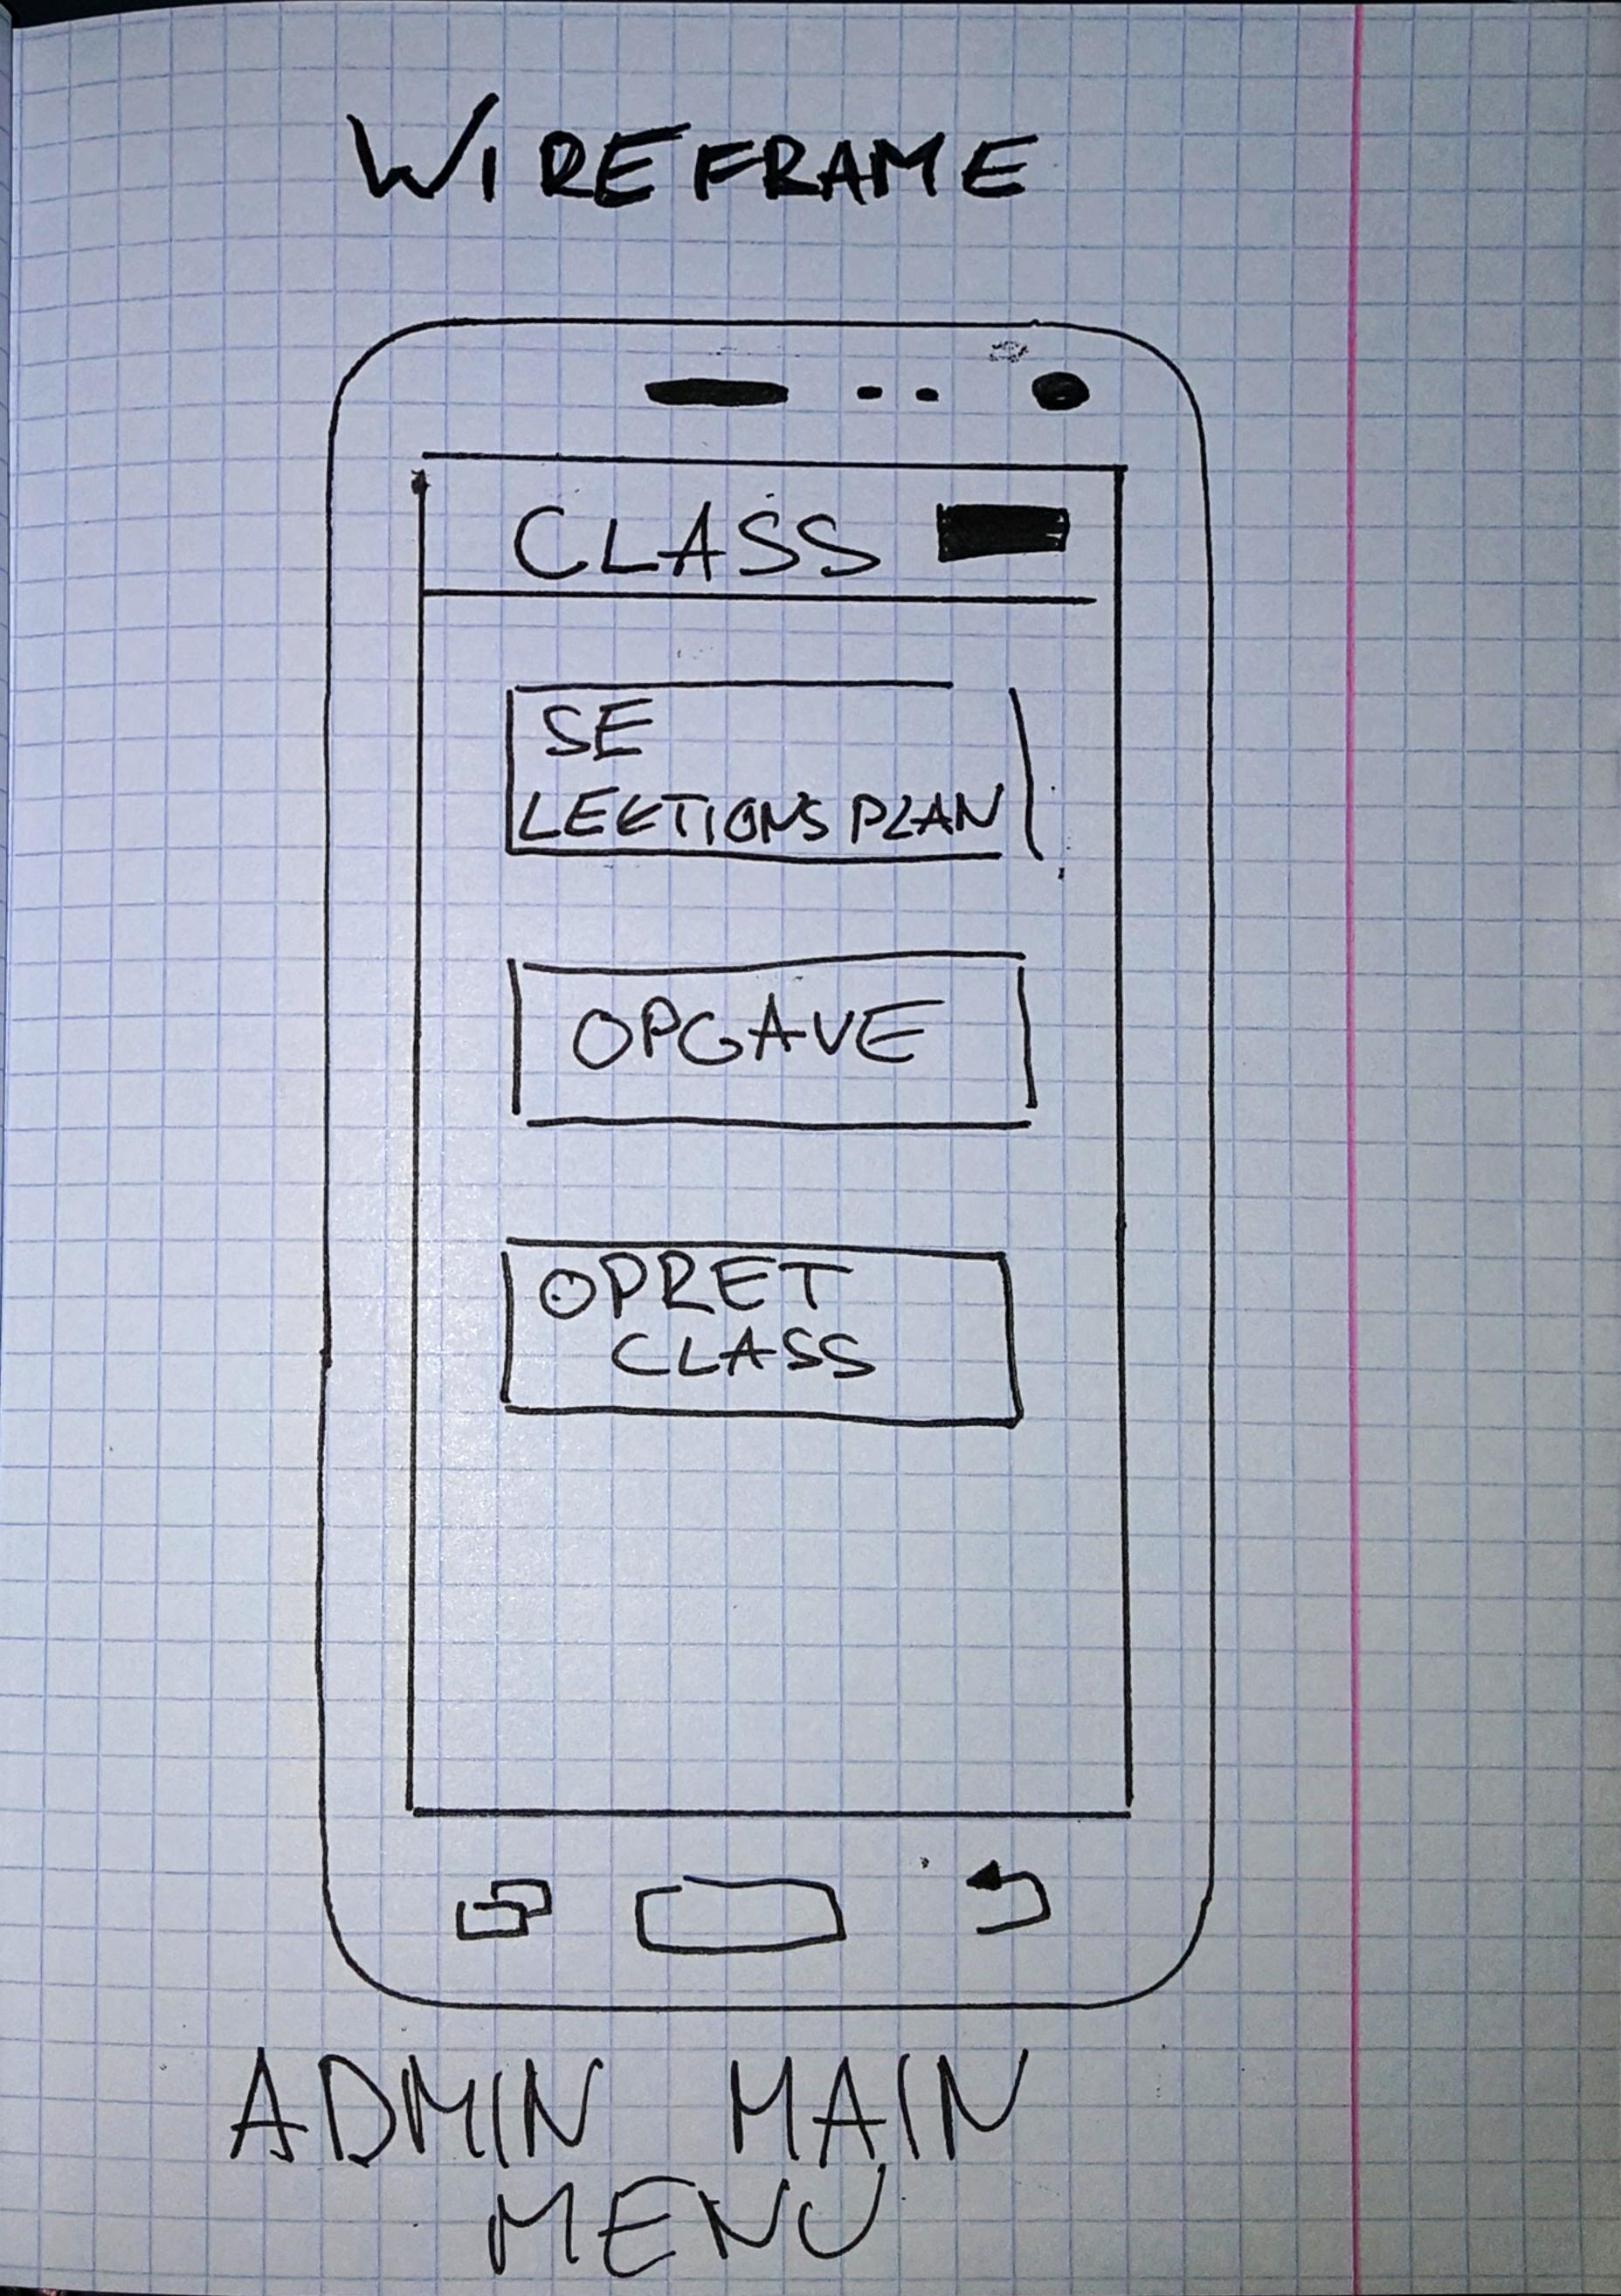 WIREFRAME
CLASS
SE
LEKTIONSPLAN
OPGAVE
OPRET
CLASS
ADMIN MAIN
MENU